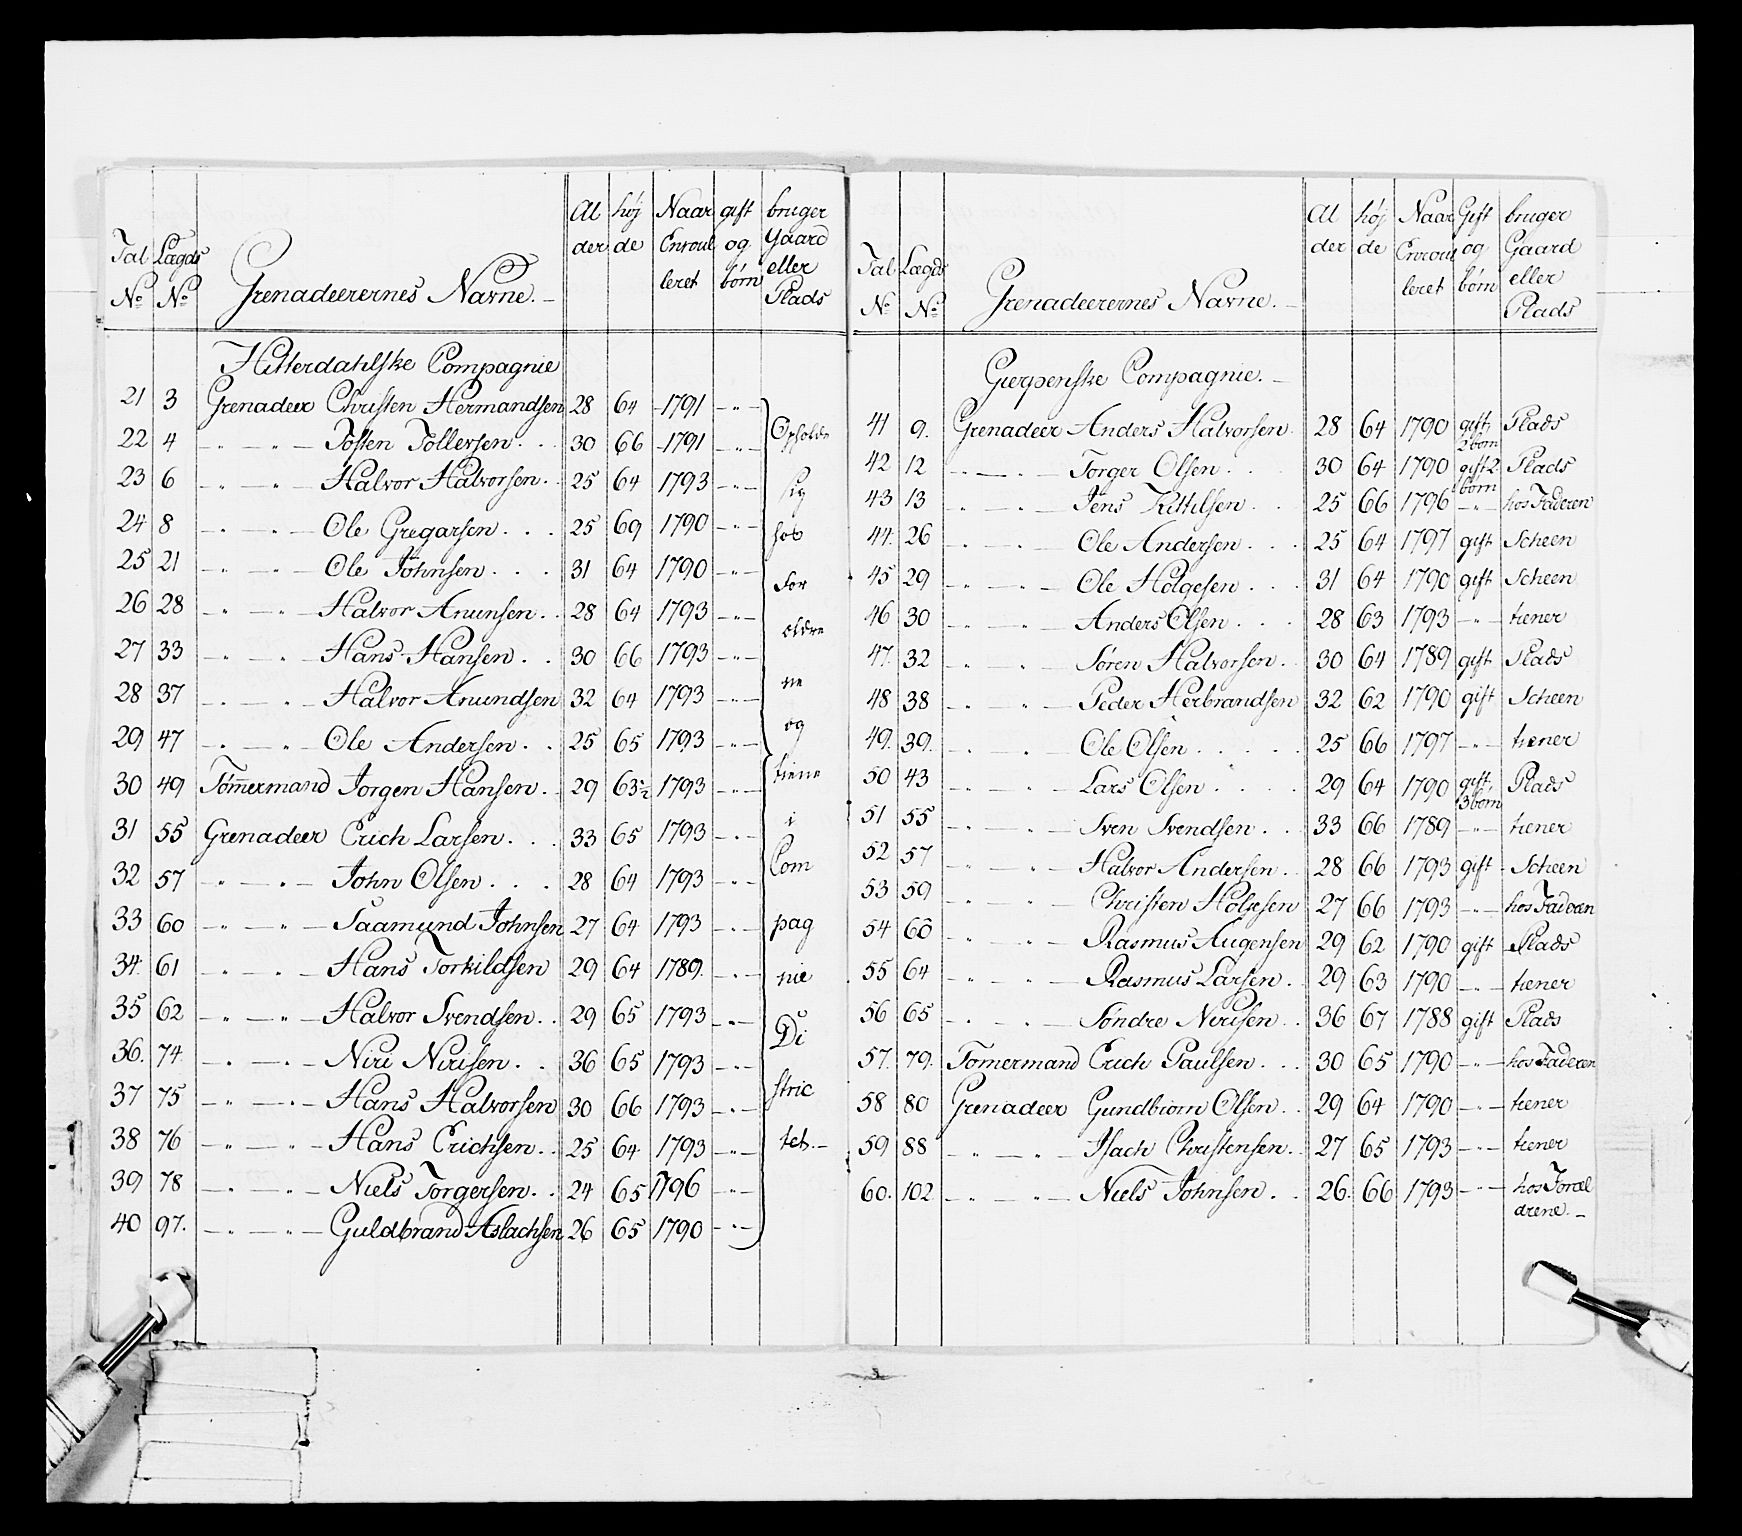 Tal No Lægds No Grenadeerernes Navne. Al der høj de Naar Enroul leret gift og børn bruger Gaard eller Plads
Hitterdahlske Compagnie
21 3 Grenadeer Christen Hermandsen 28 64 1791 - " -
22 4 - " - " - Tosten Tollersen . . 30 66 1791 - " -
23 6 - " - " - Halvor Halvorsen . 25 64 1793 - " -
24 8 - " - " - Ole Gregarsen . . . 25 69 1790 - " -
25 21 - " - " - Ole Johnsen . . . 31 64 1790 - " -
26 28 - " - " - Halvor Anunsen . . 28 64 1793 - " -
27 33 - " - " - Hans Hansen . . 30 66 1793 - " -
28 37 - " - " - Halvor Anundsen 32 64 1793 - " -
29 47 - " - " - Ole Andersen . . 25 65 1793 - " -
30 49 Tömmermand Jorgen Hansen . . 29 63½ 1793 - " -
31 55 Grenadeer Erich Larsen . . . 33 65 1793 - " -
32 57 - " - " - John Olsen . . . 28 64 1793 - " -
33 60 - " - " - Saamund Johnsen 27 64 1793 - " -
34. 61 - " - " - Hans Torkildsen 29 64 1789. - " -
35 62 - " - " - Halvor Svendsen . . 29 65 1793 - " -
36. 74 - " - " - Niri Nirisen . . 36 65 1793 - " -
37 75 - " - " - Hans Halvorsen 30 66 1793 - " -
38 76 - " - " - Hans Erichsen . . 25 64 1793 - " -
39 78 - " - " - Niels Torgersen . . 24 65 1796 - " -
40 97. - " - " - Guldbrand Aslachsen 26 65 1790 - " -
Opholde
sig
hos
For
ældre
ne
og
tiene
i
Com
pag
nie
Di
stric
tet. -
Tal No Lægds No Grenadeerernes Navne. - Al der høj de Naar Enroul leret Gift og børn bruger Gaard eller Plads
Gierpenske Compagnie. -
41 9. Grenadeer Anders Halvorsen 28 64 1790 gift, 2 børn Plads
42 12 - " - " - Torger Olsen . . . 30 64 1790 gift 2 børn Plads
43 13 - " - " - Jens Kittilsen . . 25 66 1796 - " - hos Faderen
44. 26 - " - " - Ole Andersen . . . 25 64 1797 gift Scheen
45 29 - " - " - Ole Holgesen . . . 31 64 1790 gift Scheen
46 30 - " - " - Anders Olsen . . . 28 63 1793 - " - tiener
47. 32 - " - " - Søren Halvorsen . . 30 64 1789 gift Plads
48 38 - " - " - Peder Herbrandsen 32 62 1790 gift Scheen
49. 39. - " - " Ole Olsen . . . . . 25 66 1797 - " - tiener
50 43 - " - " - Lars Olsen . . . . 29 64 1790 gift, 3 børn Plads
51 55 - " - " - Sven Svendsen . . . 33 66 1789 - " - tiener
52 57 - " - " - Halvor Andersen . . 28 66 1793 gift - Scheen
53 59 - " - " - Christen Holgesen 27 66 1793 - " - hos Faderen
54 60 - " - " - Rasmus Augensen 29 62 1790 gift Plads
55 64 - " - " - Rasmus Larsen . 29 63 1790 - " - tiener
56 65 - " - " - Søndre Nirisen . . 36 67 1788 gift Plads
57. 79. Tømermand Erich Paulsen . . . 30 65 1790 - " - hos Faderen
58 80 Grenadeer Gundbiørn Olsen . . 29 64 1790 - " - tiener
59 88 - " - " - Isach Christensen . 27 65 1793 - " - tiener
60. 102 - " - " - Niels Johnsen . . 26. 66 1793 - " - hos Foræl
drene. -